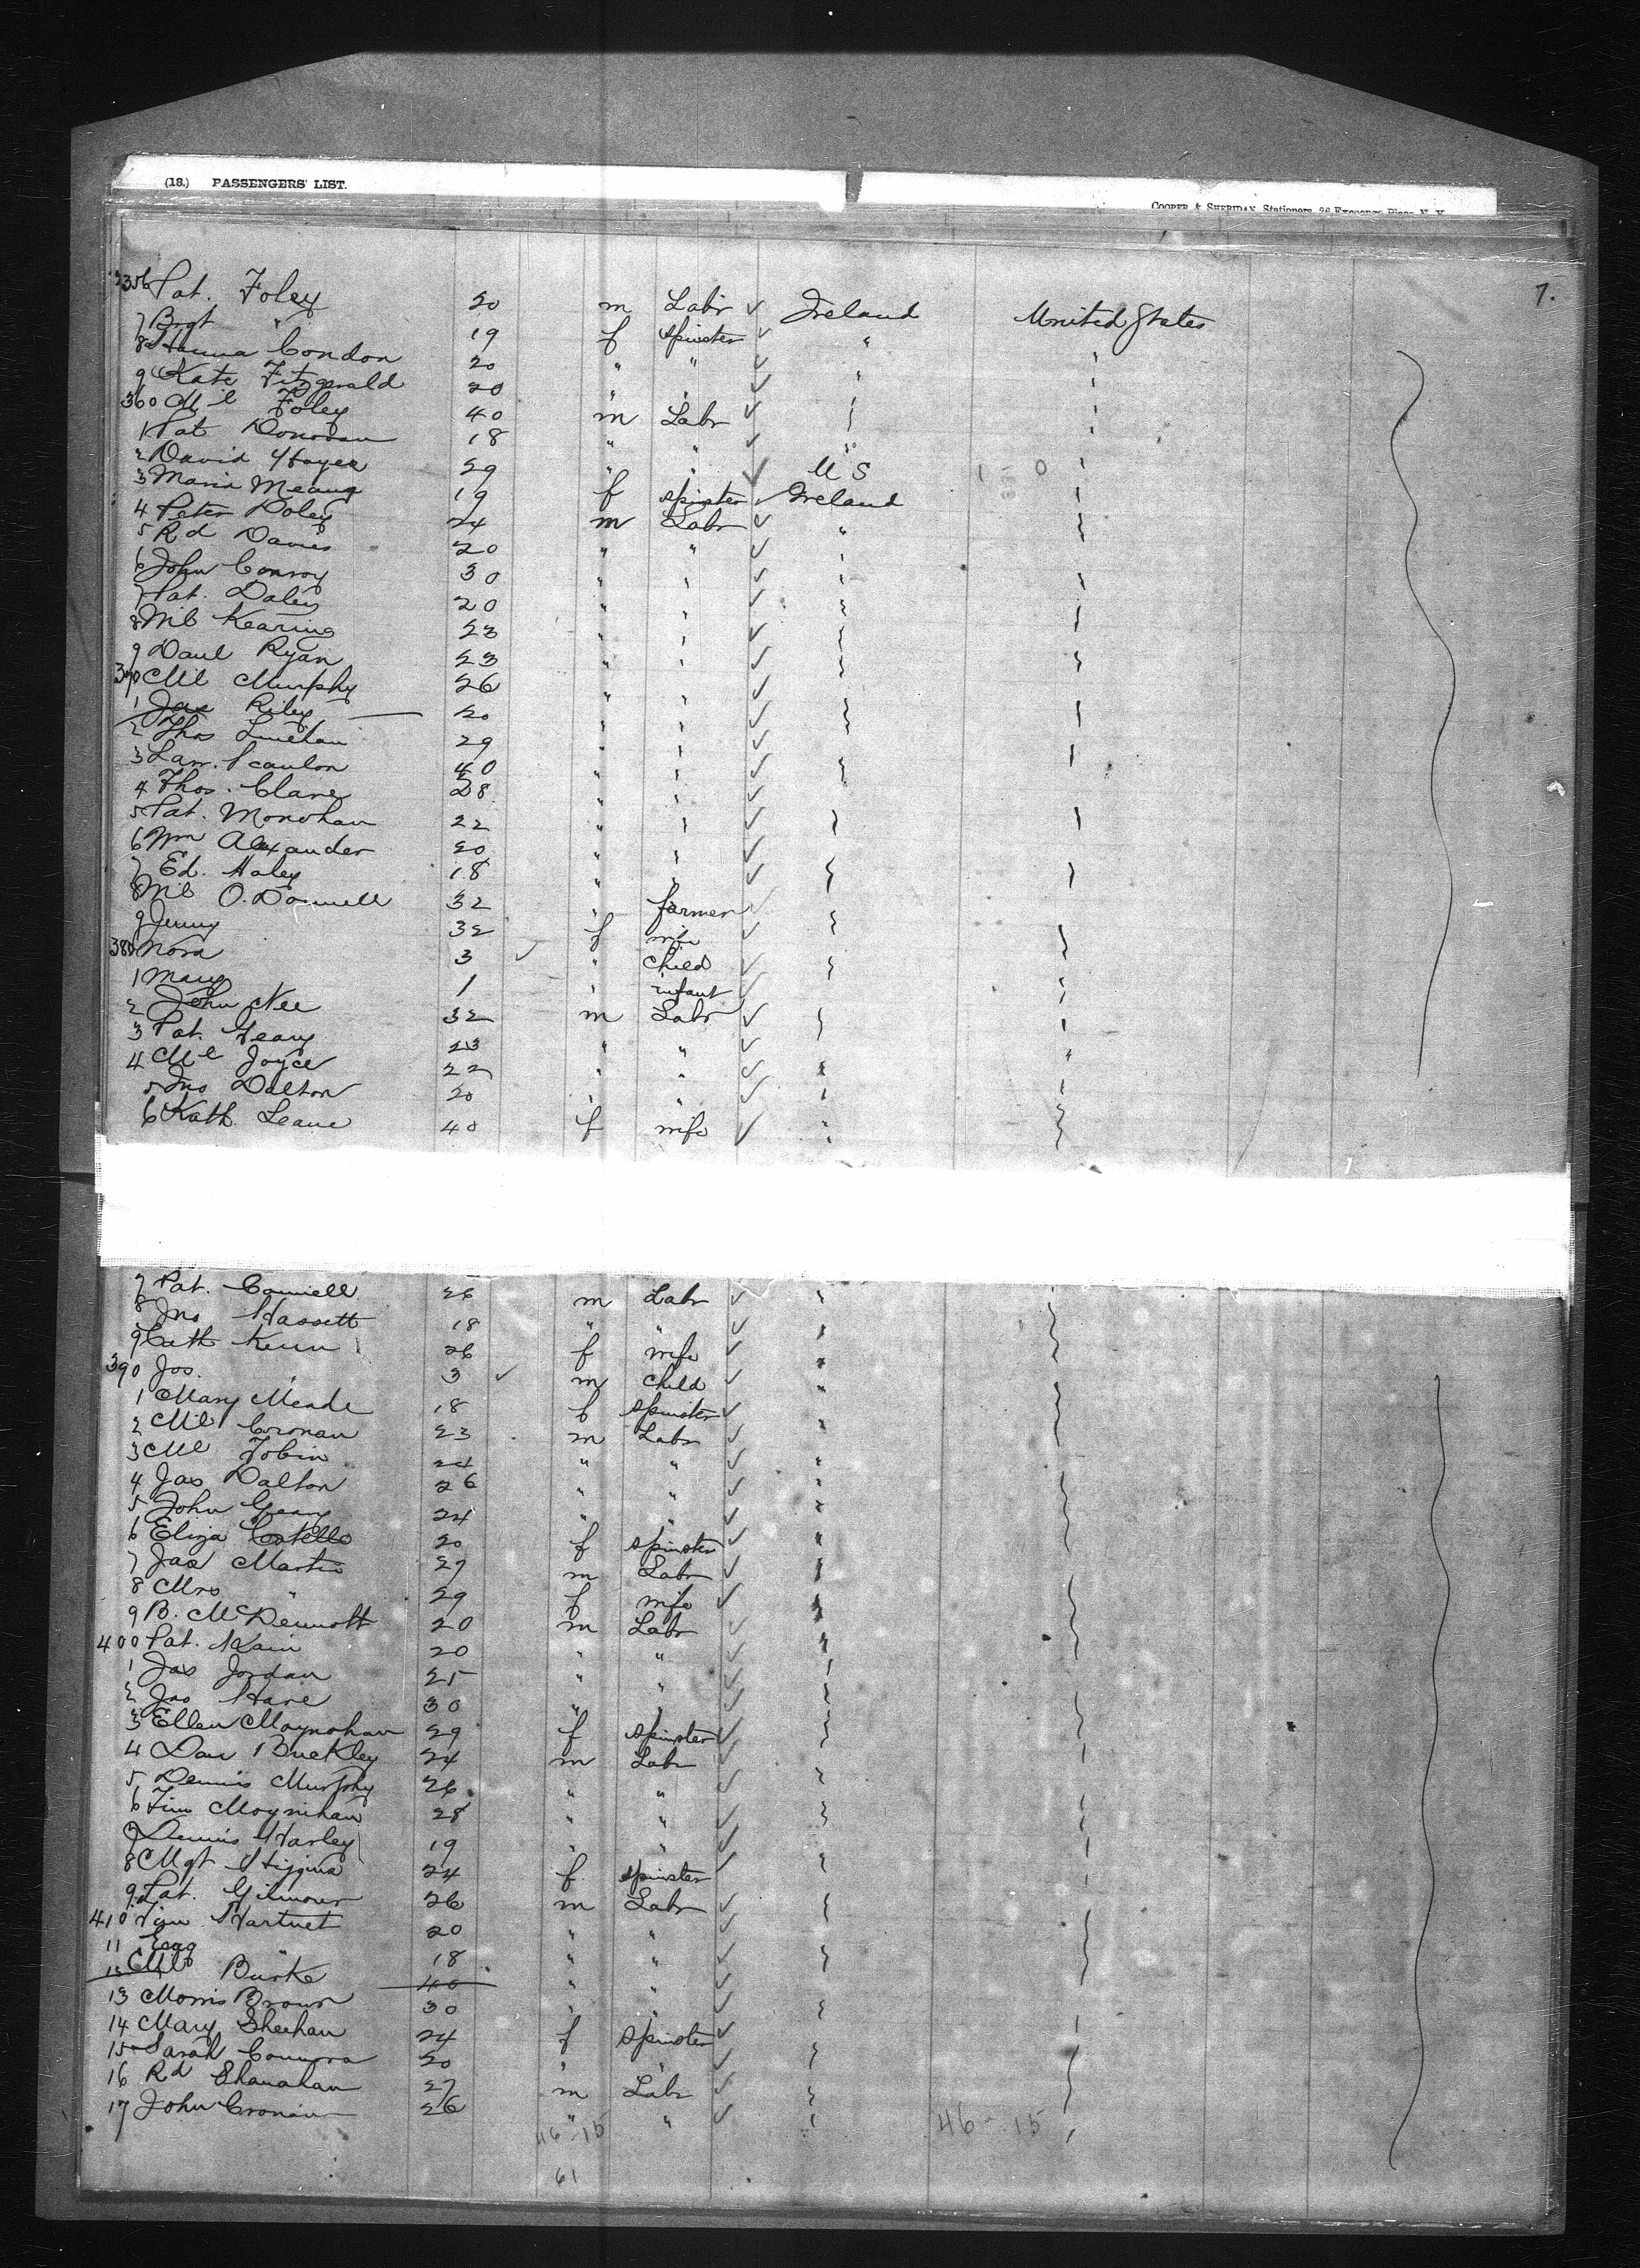 (18.) PASSENGERS' LIST.
COOPER & SHERIDAN, Stationers, 26 Exchange Place, N. Y.
7.
356 Pat. Foley 20 m Labr ✓ Ireland United States
7 Brgt " 19 f spinster ✓ "
8 Hanna Condon 20 " " ✓ "
9 Kate Fitzgerald 20 " " ✓
360 Ml Foley 40 m Labr ✓
1 Pat Donovan 18 " " ✓ "
2 David Hayes 29 " " ✓ U S
3 Maria Meany 19 f spinster ✓ Ireland
4 Peter Doley 24 m Labr ✓ "
5 Rd Davis 20 " " ✓
6 John Conroy 30 " " ✓
7 Pat. Daley 20 " " ✓
8 Ml Kearing 23 " " ✓
9 Danl Ryan 23 " " ✓
370 Ml Murphy 26 " " ✓
1 Jas Riley 20 " " ✓
2 Thos Linehan 29 " " ✓
3 Law. Scanlon 40 " " ✓
4 Thos. Clare 28 " " ✓
5 Pat. Monohan 22 " " ✓
6 Wm Alexander 20 " " ✓
7 Ed. Haley 18 " " ✓
8 Ml O. Donnell 32 " farmer ✓
9 Jenny 32 f wife ✓
380 Nora 3 ✓ " child ✓
1 Mary 1 " infant ✓
2 John Nee 32 m Labr ✓
3 Pat. Geary 23 " " ✓
4 Ml Joyce 22 " " ✓
5 Jno Dalton 20 " " ✓
6 Kath. Leane 40 f wife ✓ "
7 Pat. Connell 26 m Labr ✓
8 Jno Hassett 18 " " ✓
9 Cath Keun 26 f wife ✓ "
390 Jos. 3 ✓ m child ✓ "
1 Mary Meade 18 f spinster ✓ "
2 Ml Cronan 23 m Labr ✓
3 Ml Tobin 24 " " ✓ "
4 Jas Dalton 26 " " ✓ "
5 John Geary 24 " " ✓ "
6 Eliza Costello 20 f spinster ✓ "
7 Jas Martin 27 m Labr ✓
8 Mrs " 29 f wife ✓
9 B. McDermott 20 m Labr ✓
400 Pat. Kain 20 " " ✓
1 Jas Jordan 25 " " ✓
2 Jas Hare 30 " " ✓
3 Ellen Moynohan 29 f spinster ✓
4 Dan Buckley 24 m Labr ✓
5 Dennis Murphy 26 " " ✓
6 Tim Moynihan 28 " " ✓
7 Dennis Harley 19 " " ✓
8 Mgt Higgins 24 f spinster ✓
9 Pat. Gilmour 26 m Labr ✓
410 Tim Hartnet 20 " " ✓
11 " 18 " " ✓
12 Ml Burke 40 " " ✓
13 Morris Brown 30 " " ✓
14 Mary Sheehan 24 f spinster ✓
15 Sarah Connors 20 " " ✓
16 Rd Shanahan 27 m Labr ✓
17 John Cronan 26 " " ✓
46-15 46-15
61